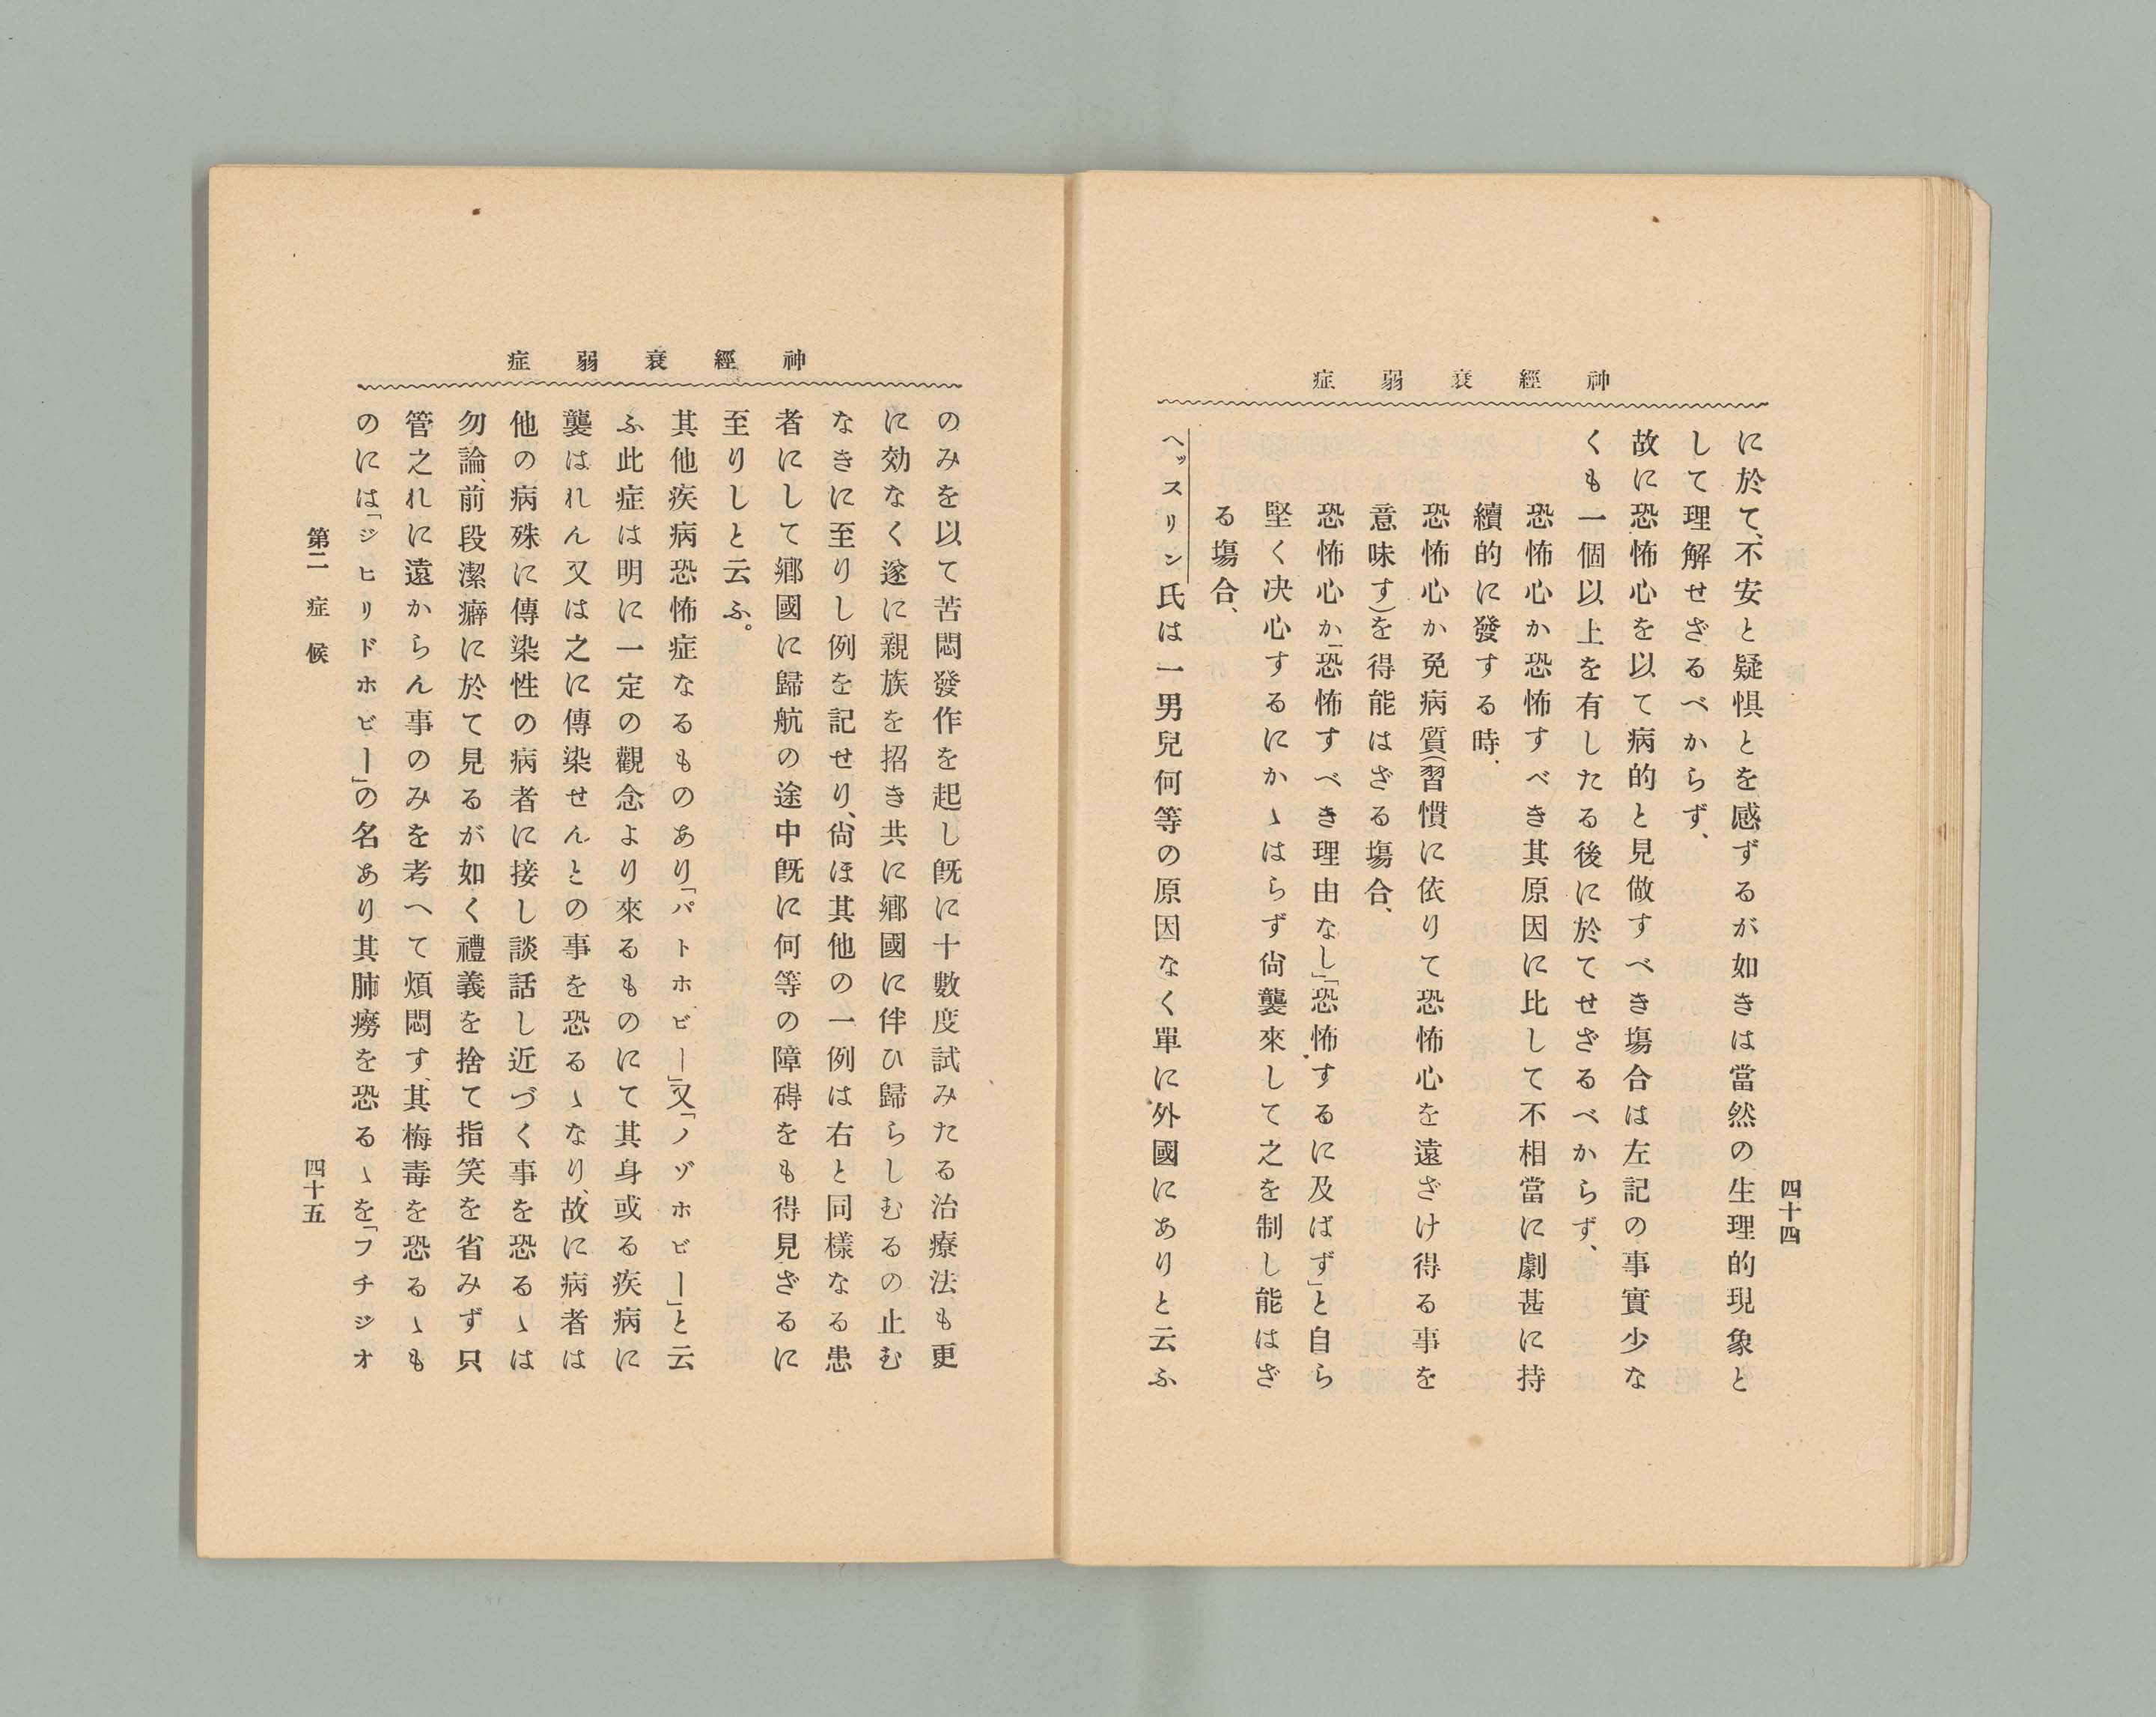 神經衰弱症
四十四
に於て、不安と疑惧とを感ずるが如きは當然の生理的現象と
して理解せざるべからず、
故に恐怖心を以て病的と見做すべき塲合は左記の事實少な
くも一個以上を有したる後に於てせざるべからず、
恐怖心か恐怖すべき其原因に比して不相當に劇甚に持
續的に發する時、
恐怖心か免病質(習慣に依りて恐怖心を遠ざけ得る事を
意味す)を得能はざる塲合、
恐怖心か「恐怖すべき理由なし」「恐怖するに及ばず」と自ら
堅く决心するにかゝはらず尙襲來して之を制し能はざ
る塲合、
ヘッスリン氏は一男兒何等の原因なく單に外國にありと云ふ
神經衰弱症
のみを以て苦悶發作を起し旣に十數度試みたる治療法も更
に効なく遂に親族を招き共に鄕國に伴ひ歸らしむるの止む
なきに至りし例を記せり、尙ほ其他の一例は右と同樣なる患
者にして鄕國に歸航の途中旣に何等の障碍をも得見ざるに
至りしと云ふ。
其他疾病恐怖症なるものあり「パトホビー」又「ノゾホビー」と云
ふ此症は明に一定の觀念より來るものにて其身或る疾病に
襲はれん又は之に傳染せんとの事を恐るゝなり、故に病者は
他の病殊に傳染性の病者に接し談話し近づく事を恐るゝは
勿論、前段潔癖に於て見るが如く禮義を捨て指笑を省みず只
管之れに遠からん事のみを考へて煩悶す、其梅毒を恐るゝも
のには「ジヒリドホビー」の名あり其肺癆を恐るゝを「フチジオ
第二 症候
四十五